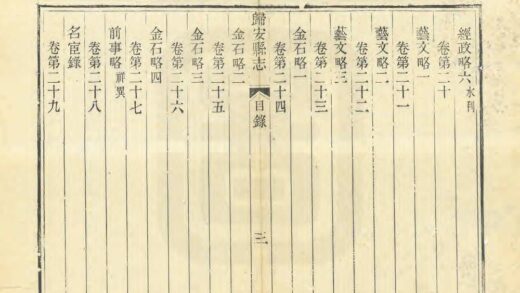 經政略六水利
卷第二十
藝文略一
卷第二十一
藝文略二
卷第二十二
藝文略三
卷第二十三
金石略一
卷第二十四
歸安縣志
目錄
三
金石略二
卷第二十五
金石略三
卷第二十六
金石略四
卷第二十七
前事略祥異
卷第二十八
名宦錄
卷第二十九